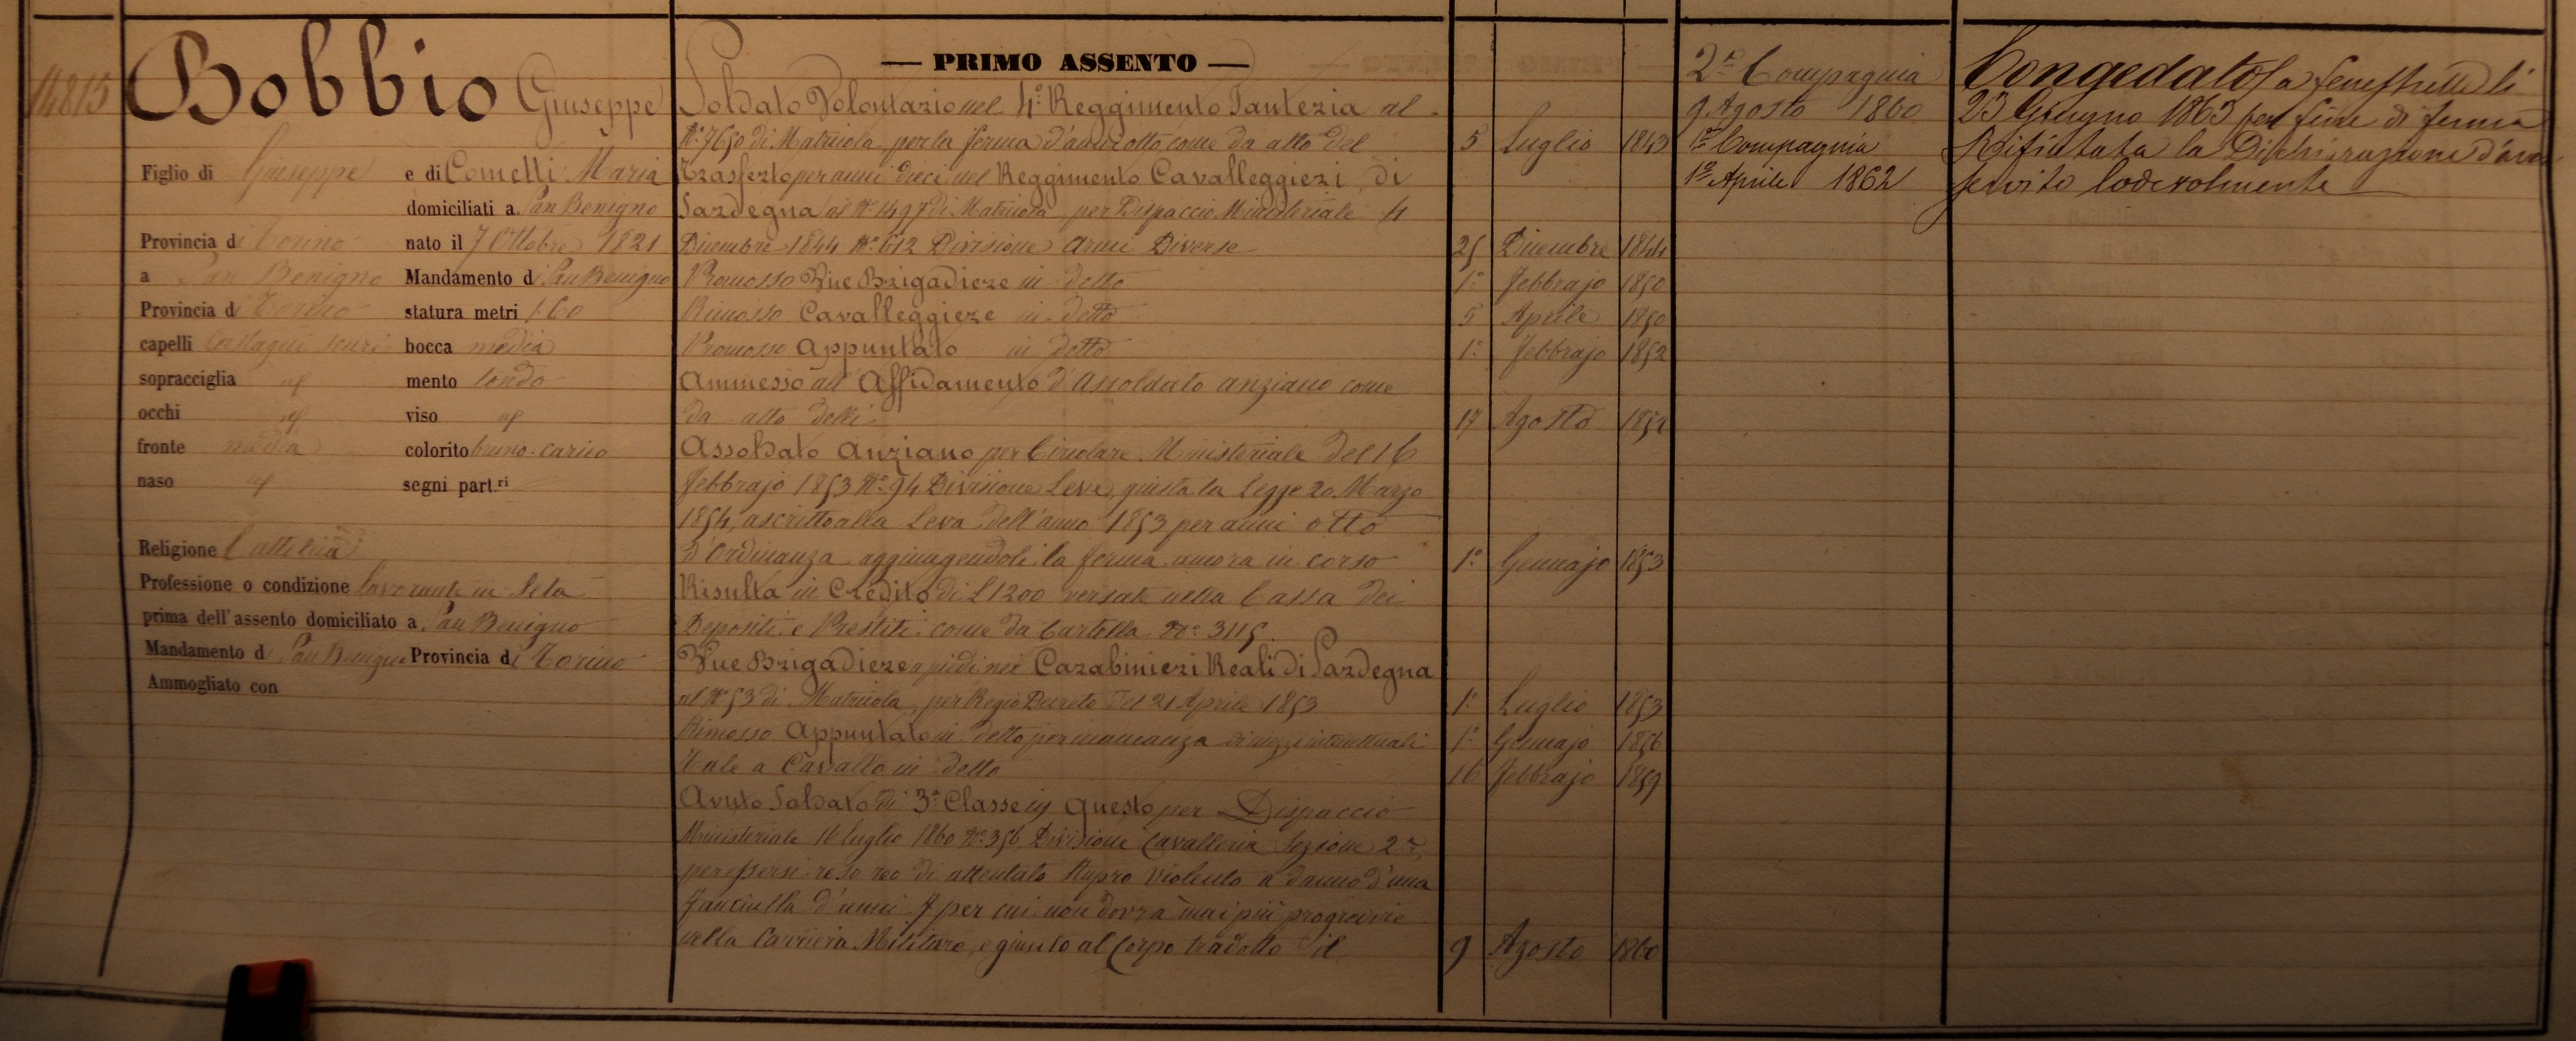 14815
Bobbio Giuseppe
Figlio di Giuseppe e di Cometti Maria
domiciliati a San Benigno
Provincia di Torino nato il 7 Ottobre 1821
a San Benigno Mandamento di San Benigno
Provincia di Torino statura metri 1.60
capelli Castagni scuri bocca media
sopracciglia id mento tondo
occhi id viso id
fronte media colorito bruno carico
naso id segni part.ri
Religione Cattolica
Professione o condizione Lavorante in Seta
prima dell'assento domiciliato a San Benigno
Mandamento di San Benigno Provincia di Torino
Ammogliato con
— PRIMO ASSENTO —
Soldato Volontario nel 4° Reggimento Fanteria al
N° 7650 di Matricola per la ferma d'anni otto come da atto del 5 Luglio 1843
Trasferto per anni dieci nel Reggimento Cavalleggieri di
Sardegna al N° 1497 di Matricola per Dispaccio Ministeriale 4
Dicembre 1844 N° 612 Divisione Armi Diverse 25 Dicembre 1844
Promosso Vice Brigadiere in detto 1° Febbrajo 1850
Rimosso Cavalleggiere in detto 5 Aprile 1850
Promosso Appuntato in detto 1° Febbrajo 1852
Ammesso all'Affidamento d'Assoldato anziano come
da atto delli 17 Agosto 1852
Assoldato Anziano per Circolare Ministeriale del 16
Febbrajo 1853 N° 94 Divisione Leve, giusta la Legge 20 Marzo
1854, ascritto alla Leva dell'anno 1853 per anni otto
d'Ordinanza aggiungendoli la ferma ancora in corso 1° Gennajo 1853
Risulta in Credito di L 1200 versate nella Cassa dei
Depositi e Prestiti come da Cartella N° 3115.
Vice Brigadiere a piedi nei Carabinieri Reali di Sardegna
al N° 53 di Matricola per Regio Decreto del 21 Aprile 1853 1° Luglio 1853
Rimosso Appuntato in detto per mancanza di mezzi intellettuali 1° Gennajo 1856
Tale a Cavallo in detto 16 Febbrajo 1859
Avuto Soldato di 3a Classe in questo per Dispaccio
Ministeriale 16 luglio 1860 N° 356 Divisione Cavalleria Sezione 2a
per essersi reso reo di attentato stupro violento a danno d'una
fanciulla d'anni 7 per cui non dovrà mai più progredire
nella Carriera Militare, e giunto al Corpo tradotto il 9 Agosto 1860
2a Compagnia
9 Agosto 1860
1a Compagnia
1° Aprile 1862
Congedato a Fenestrelle li
23 Giugno 1863 per fine di ferma
Rifiutata la Dichiarazione d'aver
servito lodevolmente